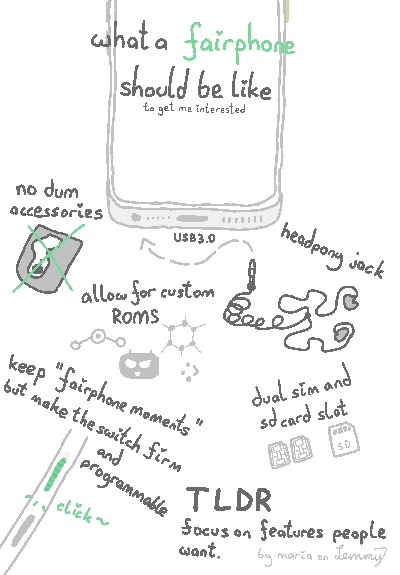 what a fairphone
should be like
to get me interested
no dum
accessories
USB3.0
headpony jack
allow for custom
ROMS
keep "fairphone moments"
but make the switch firm
and
programmable
click~
dual sim and
sd card slot
SD
TLDR
focus on features people
want.
by maria on Lemmy